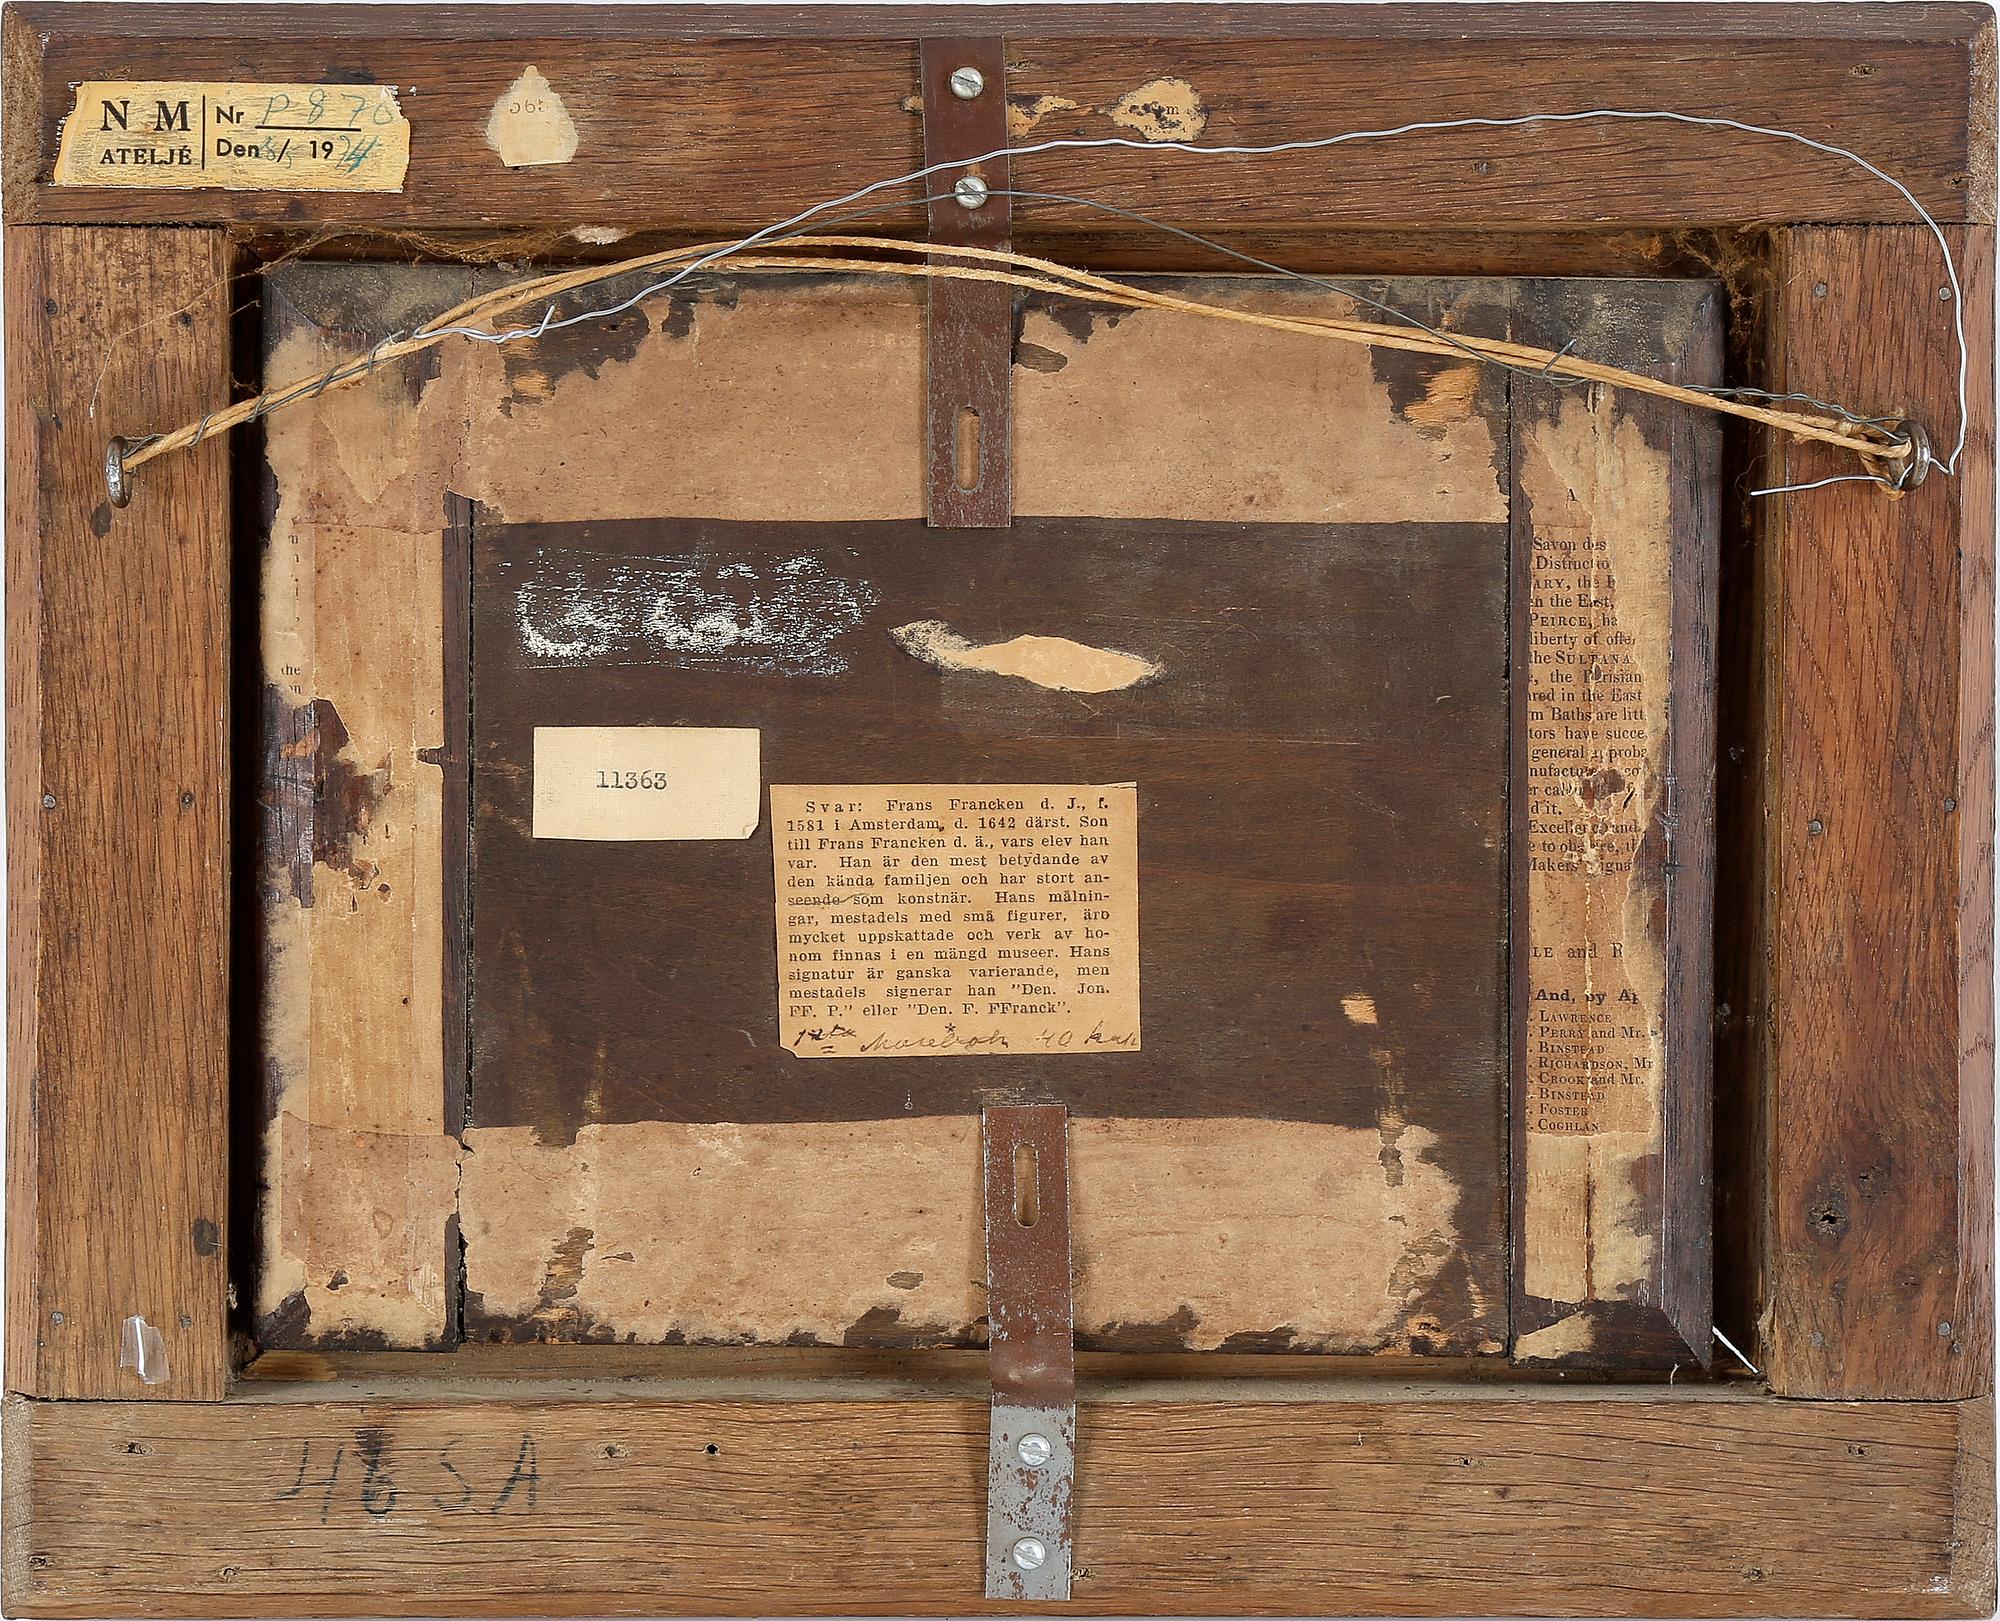 N M
ATELJÉ
Nr P 870
Den / 19
565
m
the
on
11363
Svar: Frans Francken d. J., f.
1581 i Amsterdam, d. 1642 därst. Son
till Frans Francken d. ä., vars elev han
var. Han är den mest betydande av
den kända familjen och har stort an-
seende som konstnär. Hans målnin-
gar, mestadels med små figurer, äro
mycket uppskattade och verk av ho-
nom finnas i en mängd museer. Hans
signatur är ganska varierande, men
mestadels signerar han "Den. Jon.
FF. P." eller "Den. F. FFranck".
40
A
Savon des
Distinctio
ARY, the
n the East,
PEIRCE, ha
liberty of
the SULTANA
the Parisian
red in the East
m Baths are litt
tors have succe
general proba
nufactu
d it.
Excelle and
e to
Makers' igna
LE and R
And, by Ap
LAWRENCE
PERRY and Mr.
BINSTEAD
RICHARDSON, Mr
CROOK and Mr.
BINSTEAD
FOSTER
COGHLAN
46 SA